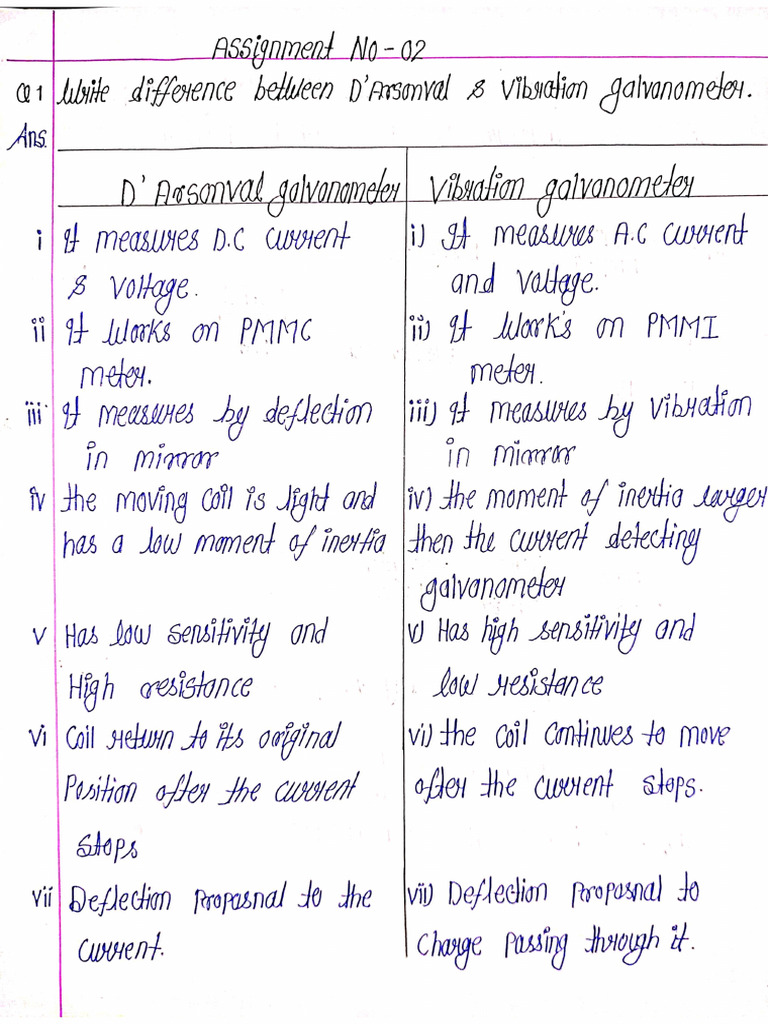 Assignment No-02
Q1 Write difference between D'Arsonval & Vibration galvanometer.
Ans.
D' Arsonval galvanometer
i It measures D.C current
& voltage.
ii It works on PMMC
meter.
iii It measures by deflection
in mirror
iv the moving coil is light and
has a low moment of inertia
v Has low sensitivity and
High resistance
vi Coil return to its original
Position after the current
stops
vii Deflection Propasnal to the
current.
Vibration galvanometer
i) It measures A.C current
and voltage.
ii) It work's on PMMI
meter.
iii) It measures by vibration
in mirror
iv) the moment of inertia larger
then the current detecting
galvanometer
v) Has high sensitivity and
low resistance
vi) the coil continues to move
after the current stops.
vii) Deflection Propasnal to
charge passing through it.